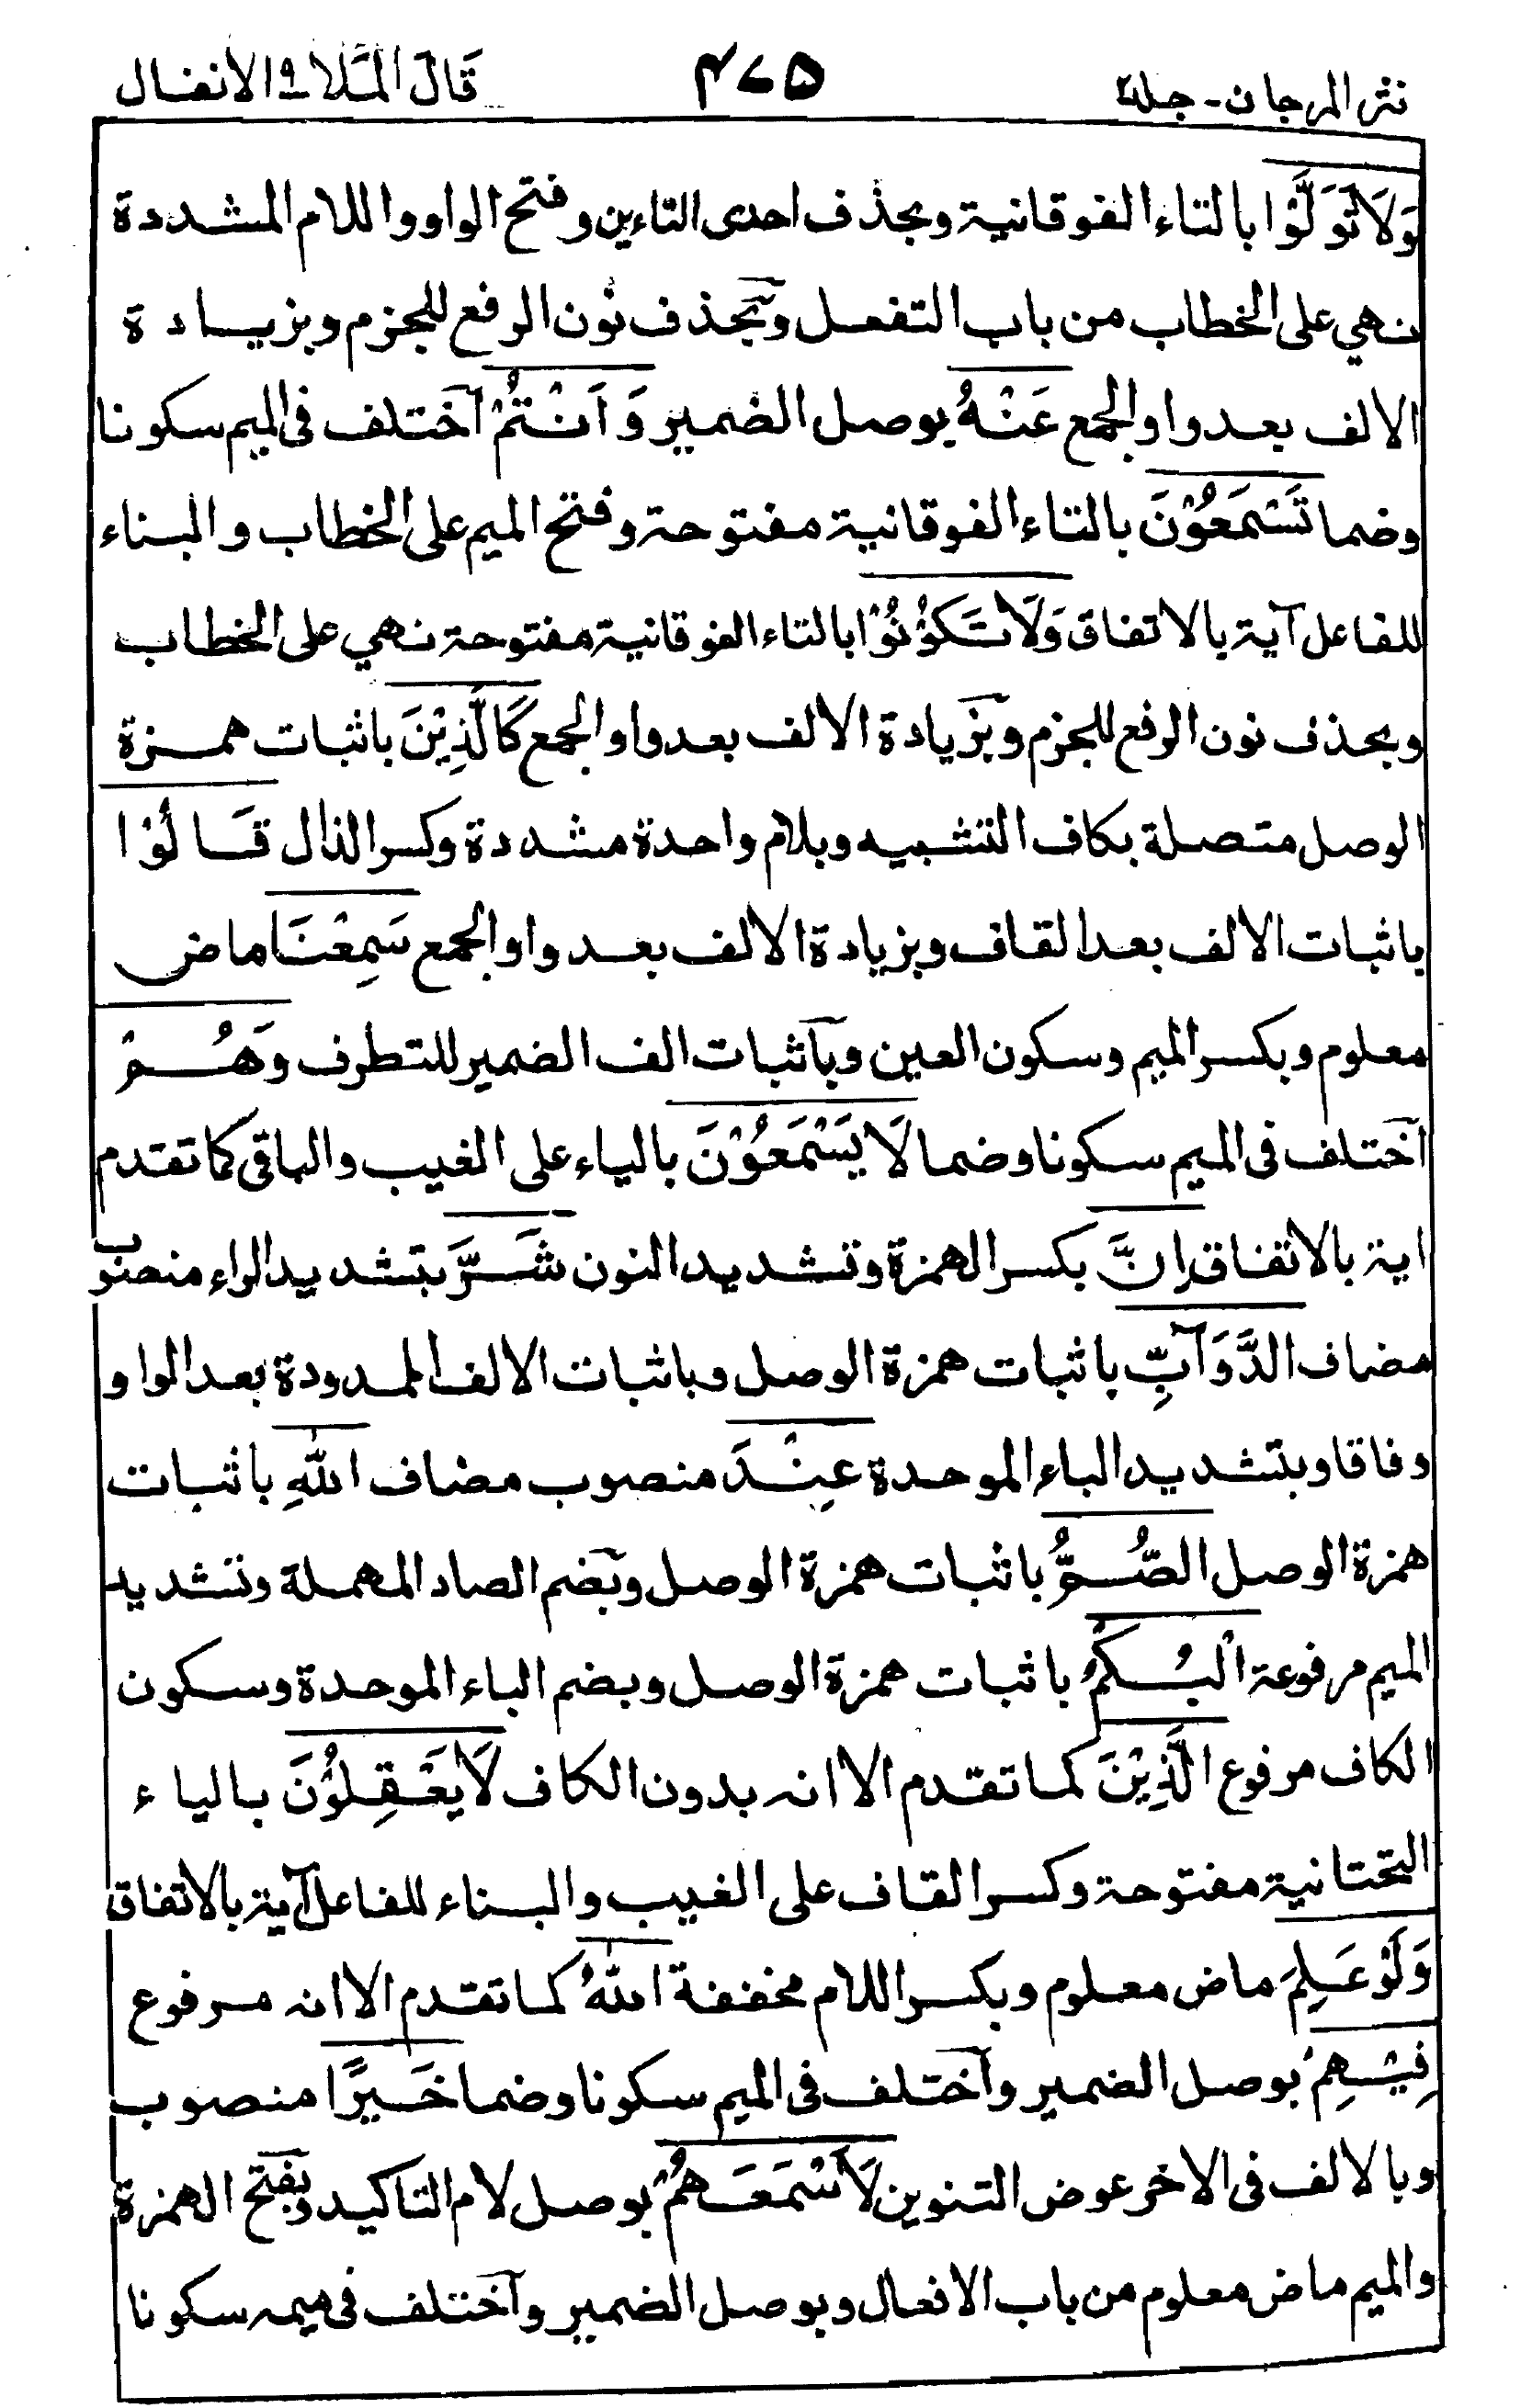 نثر المرجان - جلد٢ ٤٧٥ قَالَ المَلَا ٩ الانفال
وَلَا تَوَلَّوْا بالتاء الفوقانية وبحذف احدى التاءين وفتح الواو واللام المشددة
نهي على الخطاب من باب التفعل وبحذف نون الرفع للجزم وبزيادة
الالف بعد واو الجمع عَنْهُ بوصل الضمير وَاَنْتُمْ اختلف فى الميم سكونا
وضما تَسْمَعُوْنَ بالتاء الفوقانية مفتوحة وفتح الميم على الخطاب والبناء
للفاعل آية بالاتفاق وَلَا تَكُوْنُوْا بالتاء الفوقانية مفتوحة نهي على الخطاب
وبحذف نون الرفع للجزم وبزيادة الالف بعد واو الجمع كَالَّذِيْنَ باثبات همزة
الوصل متصلة بكاف التشبيه وبلام واحدة مشددة وكسر الذال قَالُوْا
باثبات الالف بعد القاف وبزيادة الالف بعد واو الجمع سَمِعْنَا ماض
معلوم وبكسر الميم وسكون العين وباثبات الف الضمير للتطرف وَهُمْ
اختلف فى الميم سكونا وضما لَا يَسْمَعُوْنَ بالياء على الغيب والباقى كما تقدم
اية بالاتفاق اِنَّ بكسر الهمزة وتشديد النون شَرَّ بتشديد الراء منصوب
مضاف الدَّوَآبِّ باثبات همزة الوصل وباثبات الالف الممدودة بعد الواو
وفاقا وبتشديد الباء الموحدة عِنْدَ منصوب مضاف اللّٰهِ باثبات
همزة الوصل الصُّمُّ باثبات همزة الوصل وبضم الصاد المهملة وتشديد
الميم مرفوعة الْبُكْمُ باثبات همزة الوصل وبضم الباء الموحدة وسكون
الكاف مرفوع الَّذِيْنَ كما تقدم الا انه بدون الكاف لَا يَعْقِلُوْنَ بالياء
التحتانية مفتوحة وكسر القاف على الغيب والبناء للفاعل آية بالاتفاق
وَلَوْ عَلِمَ ماض معلوم وبكسر اللام مخففة اللّٰهُ كما تقدم الا انه مرفوع
فِيْهِمْ بوصل الضمير واختلف فى الميم سكونا وضما خَيْرًا منصوب
وبالالف فى الاخر عوض التنوين لَاَسْمَعَهُمْ بوصل لام التاكيد وبفتح الهمزة
والميم ماض معلوم من باب الافعال وبوصل الضمير واختلف فى ميمه سكونا